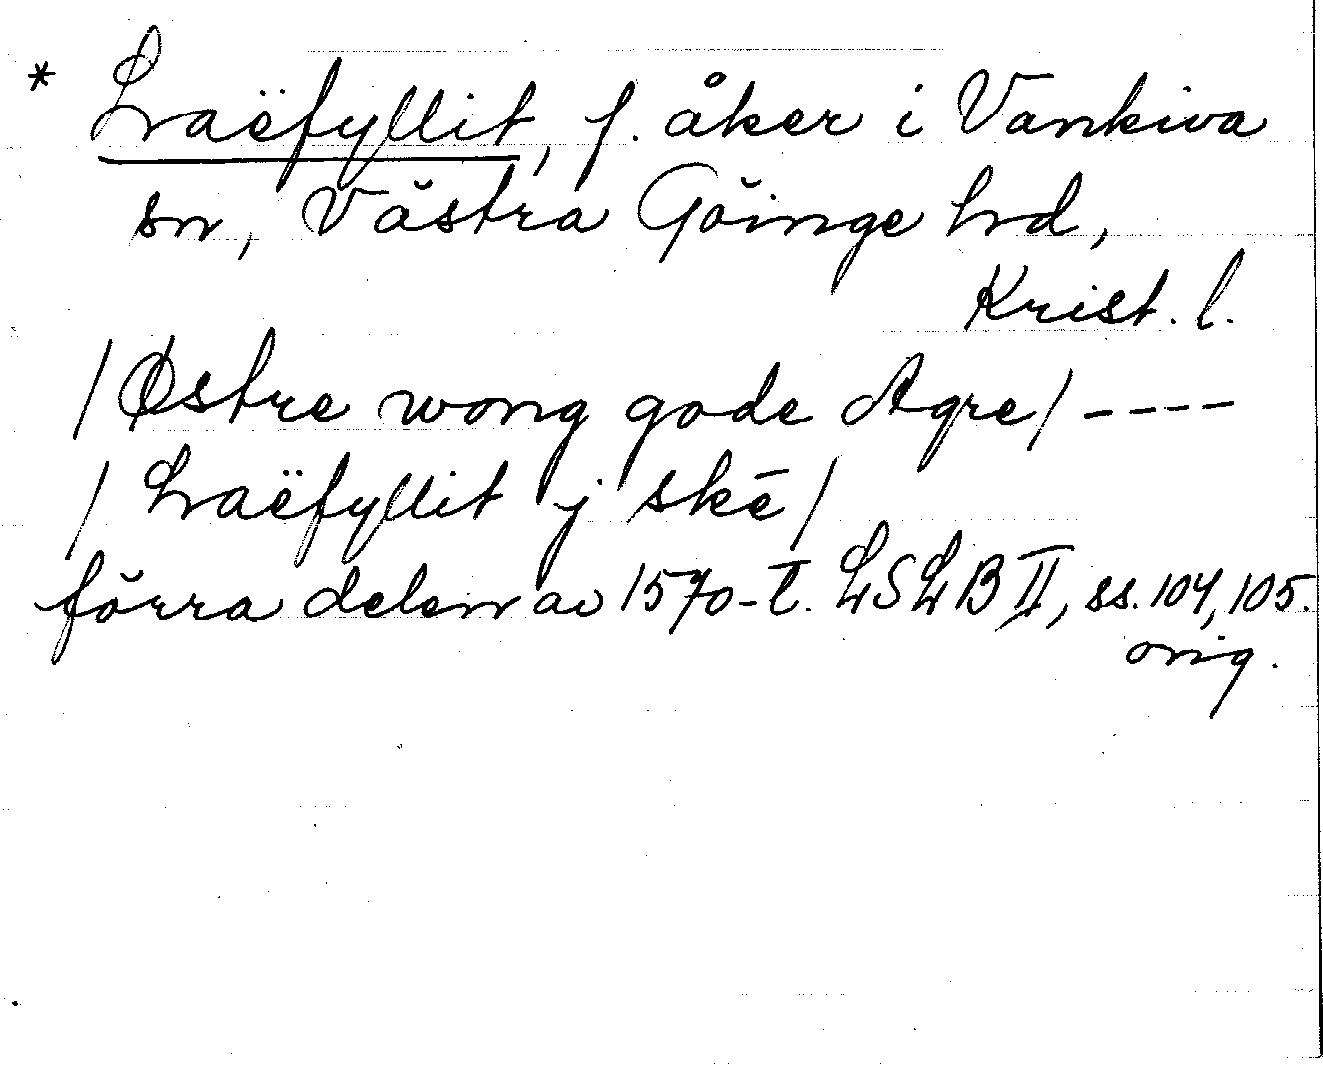 * Lraëfyllit, f. åker i Vankiva
sn, Västra Göinge hd,
Krist. l.
/Østre wong gode Agre/ ----
/ Lraëfyllit j skē /
förra delen av 1570-t. LSLB II, ss. 104, 105.
orig.